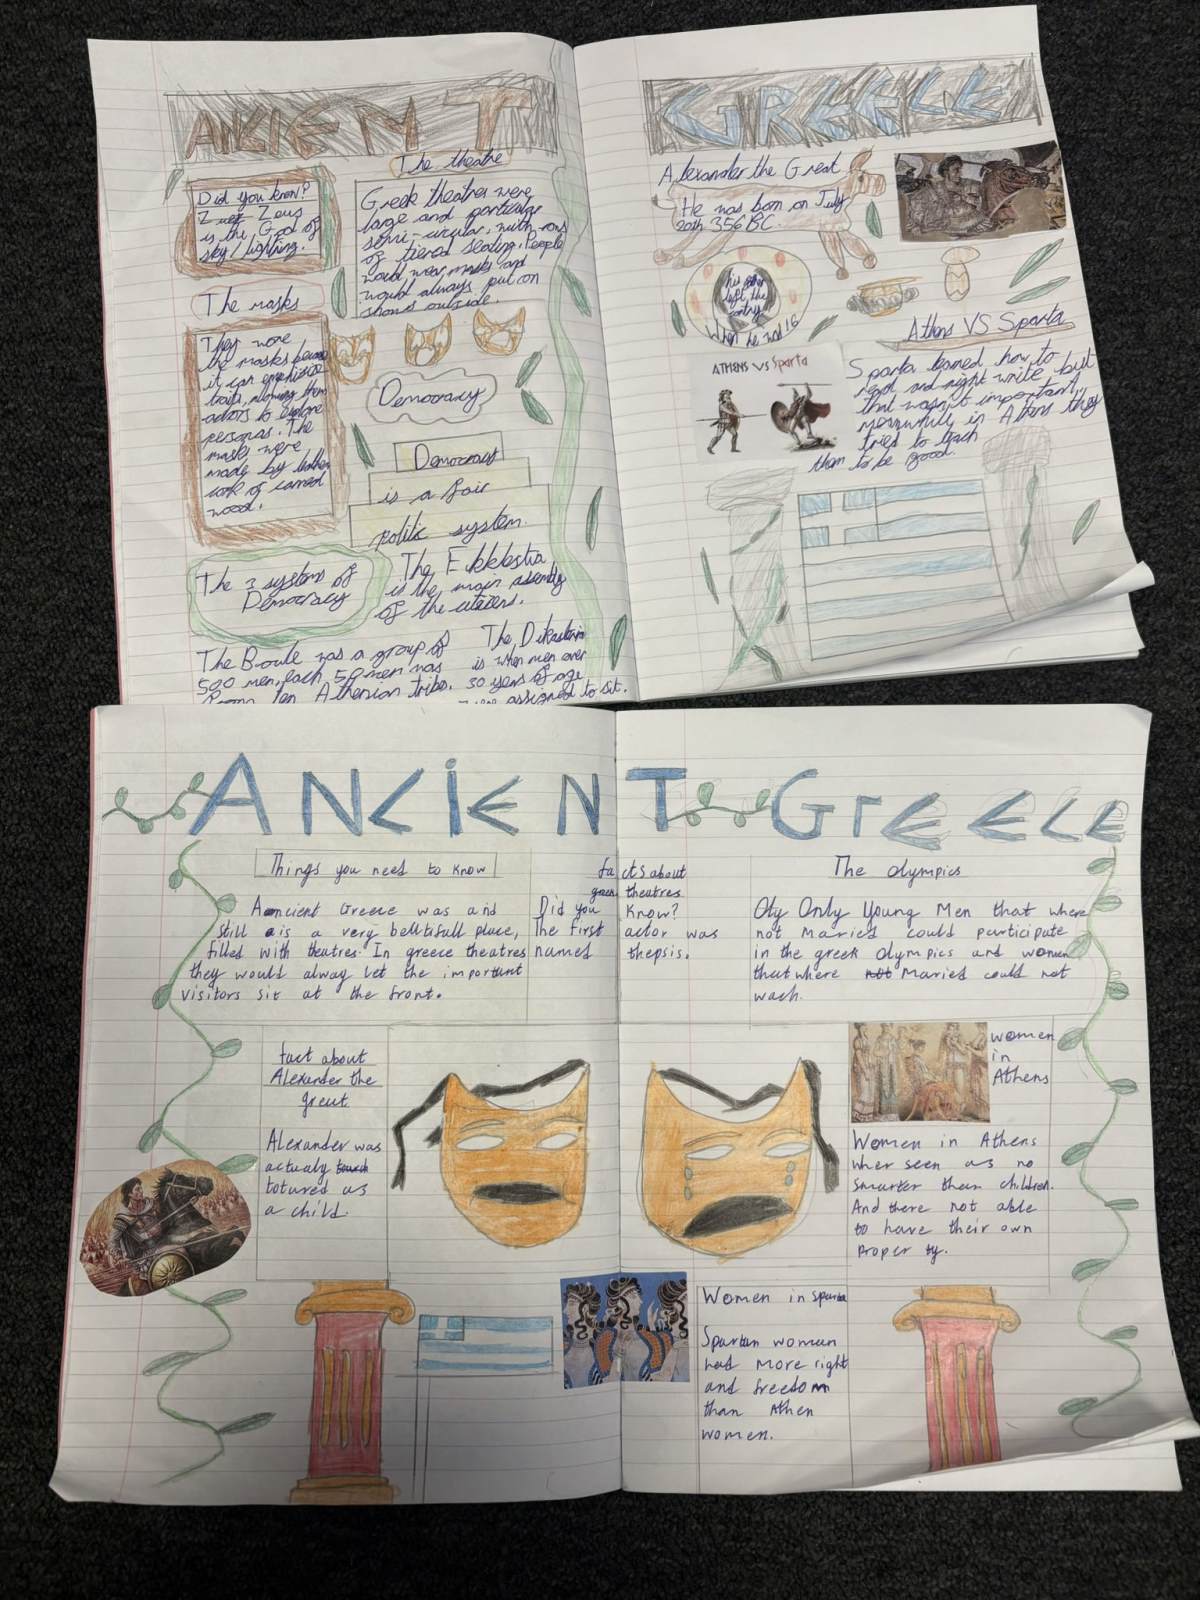 ANCIENT GREECE
The theatre
Did you know?
Zeus
is the God of
sky / lighting.
Greek theatres were
large and particular
semi-circular, with rows
of tiered seating. People
would wear masks and
would always put on
shows outside.
The masks
They wore
the masks because
it can emphisise
traits, allowing them
actors to explore
personas. The
masks were
made by
cork of carved
wood.
Democracy
Democracy
is a fair
politic system.
The 3 systems of
Democracy
The Ekklestia
is the main assembly
of the
The Boule was a group of
500 men, each, 50 men was
ten Athenian tribe.
The
is when men over
30 years of age
were assigned to sit.
Alexander the Great
He was born on July
20th 356 BC.
his
left the
contry
When he was 16
Athens VS Sparta
ATHENS VS Sparta
Sparta learned how to
read and write but
that wasn't important,
meanwhile in Athens they
tried to teach
them to be good.
ANCIENT GrEECE
Things you need to know
Ancient Greece was and
still is a very beltifull place,
filled with theatres. In greece theatres
they would alway let the important
visitors sit at the front.
facts about
theatres
Did you know?
The first actor was
named thepsis.
The olympics
Oly Only Young Men that where
not Maried could participate
in the greek Olympics and women
that where not Maried could not
wach.
fact about
Alexander the
great
Alexander was
actualy
totured as
a child.
women
in
Athens
Women in Athens
wher seen as no
smarter then children.
And there not able
to have their own
property.
Women in Sparta
Spartan woman
had more right
and freedom
than Athen
women.